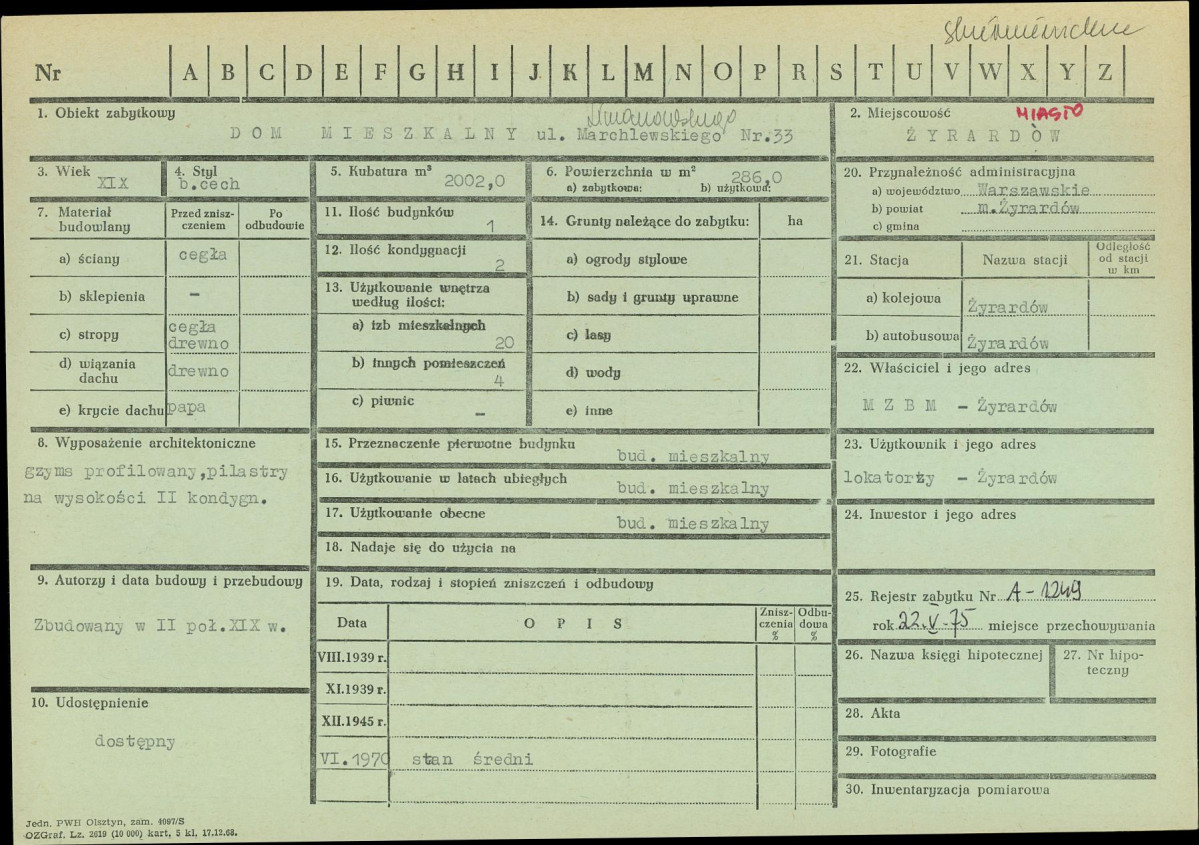 skierniewickie
Nr A B C D E F G H I J K L M N O P R S T U V W X Y Z
1. Obiekt zabytkowy
Limanowskiego
DOM MIESZKALNY ul. Marchlewskiego Nr.33
2. Miejscowość MIASTO
ŻYRARDÓW
3. Wiek
XIX
4. Styl
b.cech
5. Kubatura m³
2002,0
6. Powierzchnia w m²
286,0
a) zabytkowa: b) użytkowa:
20. Przynależność administracyjna
a) województwo Warszawskie
b) powiat m.Żyrardów
c) gmina
7. Materiał budowlany
Przed zniszczeniem
Po odbudowie
a) ściany cegła
b) sklepienia –
c) stropy cegła
drewno
d) wiązania dachu drewno
e) krycie dachu papa
11. Ilość budynków
1
12. Ilość kondygnacji
2
13. Użytkowanie wnętrza
według ilości:
a) izb mieszkalnych
20
b) innych pomieszczeń
4
c) piwnic
–
14. Grunty należące do zabytku: ha
a) ogrody stylowe
b) sady i grunty uprawne
c) lasy
d) wody
e) inne
21. Stacja Nazwa stacji Odległość od stacji w km
a) kolejowa Żyrardów
b) autobusowa Żyrardów
22. Właściciel i jego adres
M Z B M – Żyrardów
8. Wyposażenie architektoniczne
gzyms profilowany,pilastry
na wysokości II kondygn.
15. Przeznaczenie pierwotne budynku
bud. mieszkalny
16. Użytkowanie w latach ubiegłych
bud. mieszkalny
17. Użytkowanie obecne
bud. mieszkalny
18. Nadaje się do użycia na
23. Użytkownik i jego adres
lokatorzy – Żyrardów
24. Inwestor i jego adres
9. Autorzy i data budowy i przebudowy
Zbudowany w II poł.XIX w.
19. Data, rodzaj i stopień zniszczeń i odbudowy
Data OPIS Zniszczenia % Odbudowa %
VIII.1939 r.
XI.1939 r.
XII.1945 r.
VI.1970 stan średni
25. Rejestr zabytku Nr A-1249
rok 22.V.75 miejsce przechowywania
26. Nazwa księgi hipotecznej
27. Nr hipoteczny
10. Udostępnienie
dostępny
28. Akta
29. Fotografie
30. Inwentaryzacja pomiarowa
Jedn. PWH Olsztyn, zam. 4097/S
OZGraf. Lz. 2619 (10 000) kart, 5 kl. 17.12.68.